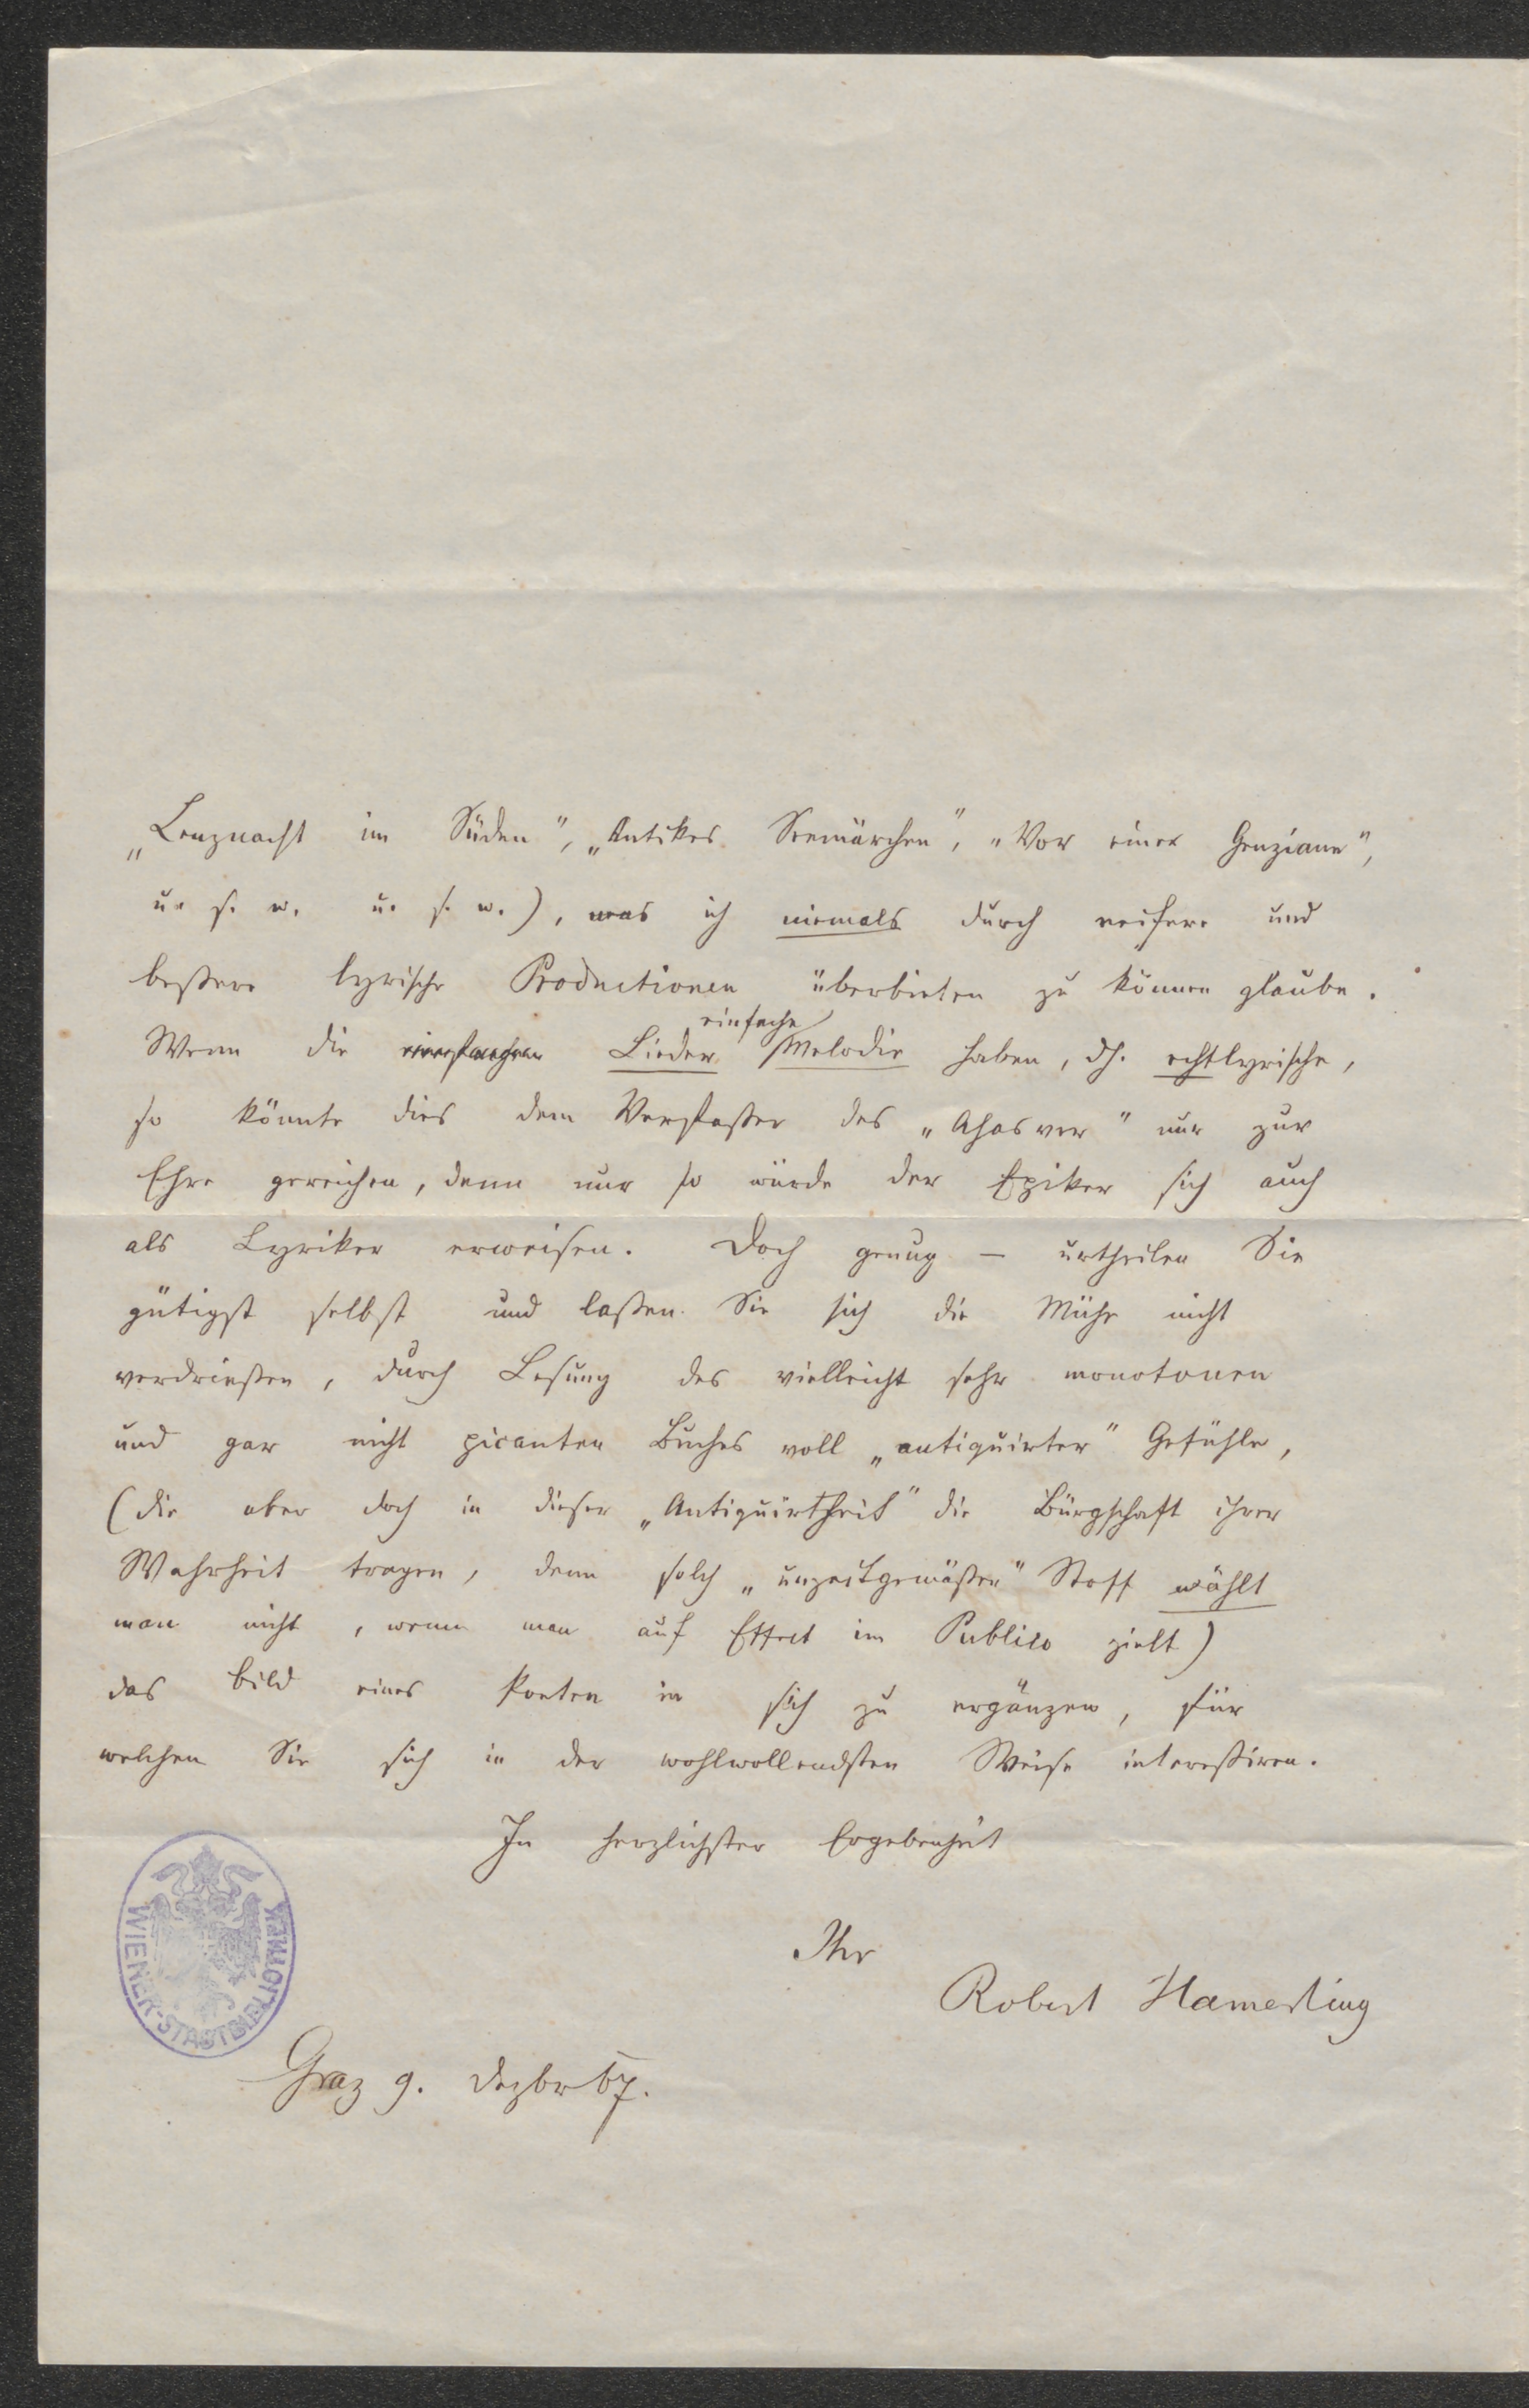 „Lenznacht im Süden", „Antikes Seemärchen", „Vor einer Genziane",
u. s. w. u. s. w.), was ich niemals durch reifere und
beßere lyrische Productionen überbieten zu können glaube.
einfache
Wenn die einfachen Lieder Melodie haben, dh. echtlyrische,
so könnte dies dem Verfaßer des „Ahasver" nur zur
Ehre gereichen, denn nur so würde der Epiker sich auch
als Lyriker erweisen. Doch genug – urtheilen Sie
gütigst selbst und laßen Sie sich die Mühe nicht
verdrießen, durch Lesung des vielleicht sehr monotonen
und gar nicht picanten Buches voll „antiquirter" Gefühle,
(die aber doch in dieser „Antiquirtheit" die Bürgschaft ihrer
Wahrheit tragen, denn solch „unzeitgemäßen" Stoff wählt
man nicht, wenn man auf Effect im Publico zielt)
das Bild eines Poeten in sich zu ergänzen, für
welchen Sie sich in der wohlwollendsten Weise intereßiren.
In herzlichster Ergebenheit
Ihr
Robert Hamerling
WIENER-STADTBIBLIOTHEK
Graz 9. Dezbr 67.